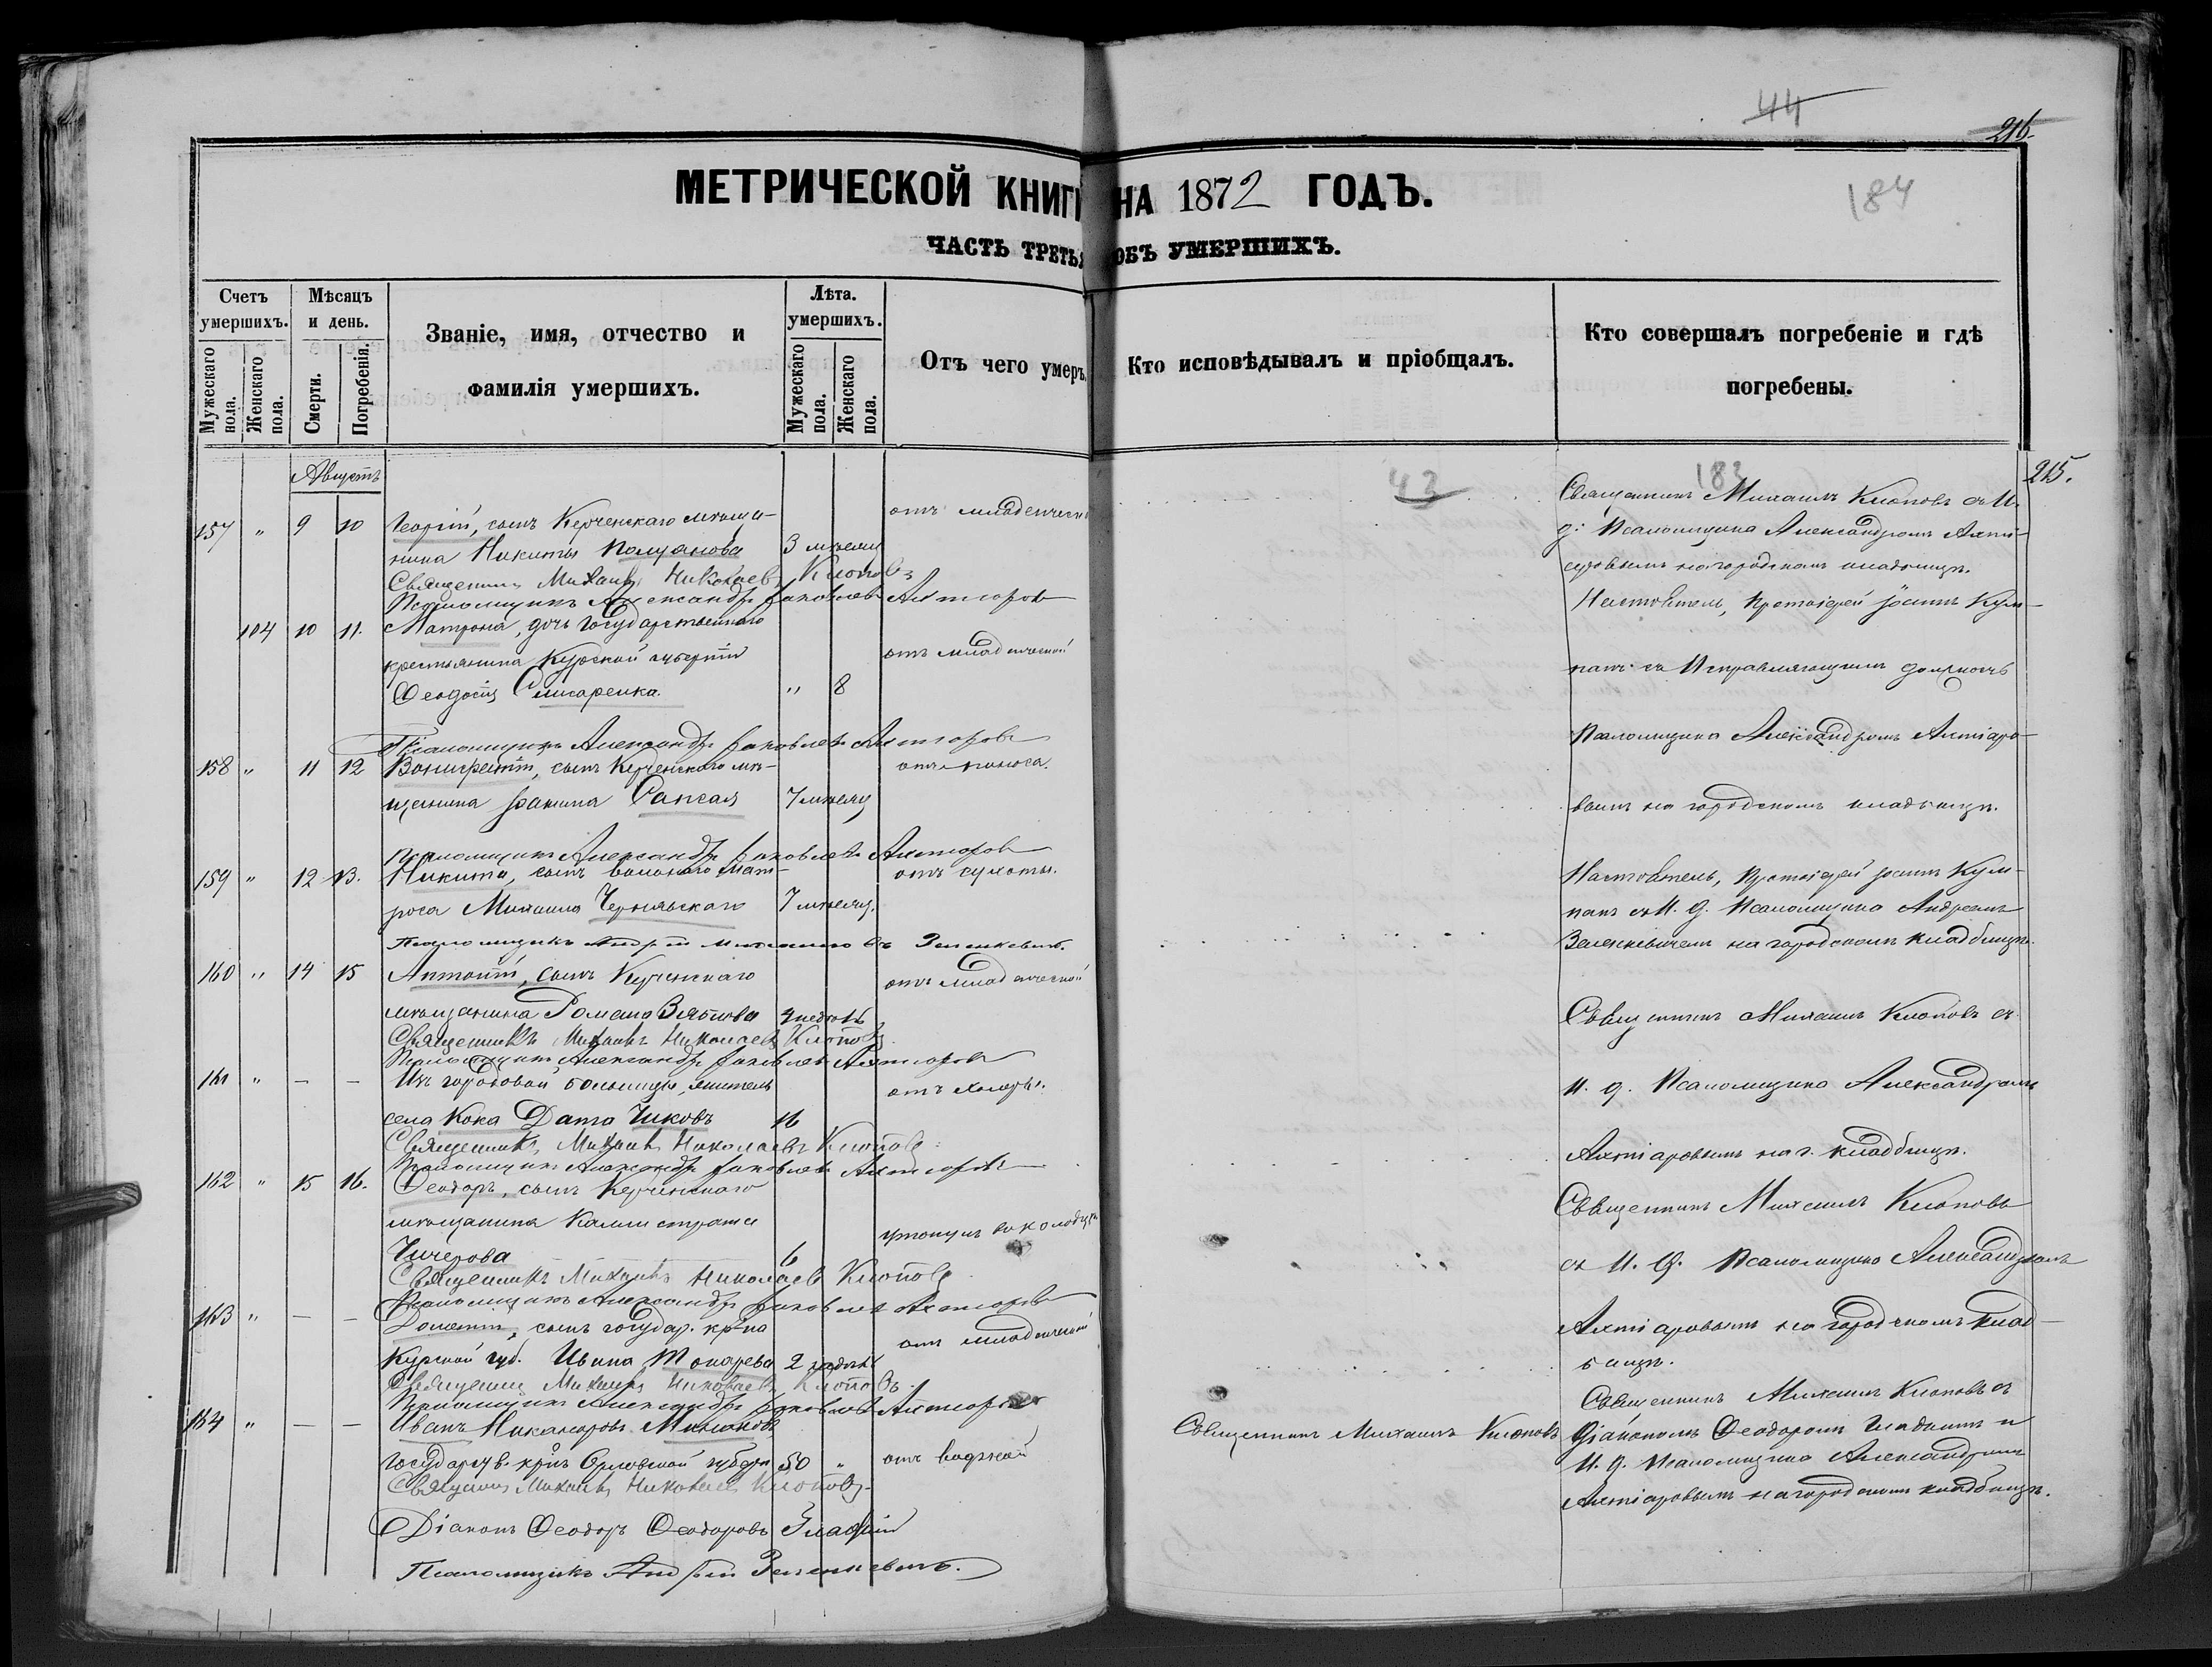 44
216.
МЕТРИЧЕСКОЙ КНИГИ НА 1872 ГОДЪ.
184
ЧАСТЬ ТРЕТЬЯ ОБЪ УМЕРШИХЪ.
Счетъ умершихъ.
Мужескаго пола.
Женскаго пола.
Мѣсяцъ и день.
Смерти.
Погребенія.
Званіе, имя, отчество и
фамилія умершихъ.
Лѣта. умершихъ.
Мужескаго пола.
Женскаго пола.
Отъ чего умеръ.
Кто исповѣдывалъ и пріобщалъ.
Кто совершалъ погребеніе и гдѣ
погребены.
Августъ
157 " 9 10 Георгій, сынъ Керченскаго мѣща-
нина Никиты 3 мѣсяц
отъ младенческ
Священникъ Михаилъ Николаевъ Клоповъ
Псаломщикъ Александръ Яковлевъ Ахтіаровъ
104 10 11. Матрона, дочь Государственнаго
крестьянина Курской губерніи
Феодосія Слисаренка. " 8
отъ младенческой
Псаломщикъ Александръ Яковлевъ Ахтіаровъ
158 " 11 12 Вонифатій, сынъ Керченскаго мѣ-
щанина 7 мѣсяц
отъ поноса.
Псаломщикъ Александръ Яковлевъ Ахтіаровъ
159 " 12 13. Никита, сынъ вольнаго мат-
роса Михаила Чернявскаго 7 мѣсяц.
отъ сухоты.
Псаломщикъ Андрей Михайловъ Зеленкевичъ.
160 " 14 15 Антоній, сынъ Керченскаго
мѣщанина Романа недѣль
отъ младенческой
Священникъ Михаилъ Николаевъ Клоповъ
Псаломщикъ Александръ Яковлевъ Ахтіаровъ
161 " — — Изъ городовой больницы, житель
села Кока Дато Чиковъ 16
отъ холеры.
Священникъ Михаилъ Николаевъ Клоповъ
Псаломщикъ Александръ Яковлевъ Ахтіаровъ
162 " 15 16. Феодоръ, сынъ Керченскаго
мѣщанина Калистрата
Чичерова 6
утонулъ въ колодцѣ
Священникъ Михаилъ Николаевъ Клоповъ
Псаломщикъ Александръ Яковлевъ Ахтіаровъ
163 " — — Дометій, сынъ государ. кр-на
Курской губ. Ивана Токарева 2 недѣль
отъ младенческой
Священникъ Михаилъ Николаевъ Клоповъ
Псаломщикъ Александръ Яковлевъ Ахтіаровъ
164 " — — Иванъ Никаноровъ
Государств. кр-нъ Орловской губерн 50 "
отъ водяной
Священникъ Михаилъ Николаевъ Клоповъ
Діаконъ Феодоръ Феодоровъ Гладкій
Псаломщикъ Андрей Зеленкевичъ.
43
183
215.
Священникъ Михаилъ Клоповъ съ И.
д. Псаломщика Александромъ Ахті-
аровымъ на городскомъ кладбищѣ.
Настоятель, Протоіерей Іоаннъ Кум-
панъ съ Исправляющимъ должность
Псаломщика Александромъ Ахтіаро-
вымъ на городскомъ кладбищѣ.
Настоятель, Протоіерей Іоаннъ Кум-
панъ съ И. д. Псаломщика Андреемъ
Зеленкевичемъ на городскомъ кладбищѣ.
Священникъ Михаилъ Клоповъ съ
И. д. Псаломщика Александромъ
Ахтіаровымъ на г. кладбищѣ.
Священникъ Михаилъ Клоповъ
съ И. д. Псаломщика Александромъ
Ахтіаровымъ на городскомъ клад-
бищѣ.
Священникъ Михаилъ Клоповъ
Священникъ Михаилъ Клоповъ съ
Діакономъ Феодоромъ Гладкимъ и
И. д. Псаломщика Александромъ
Ахтіаровымъ на городскомъ кладбищѣ.